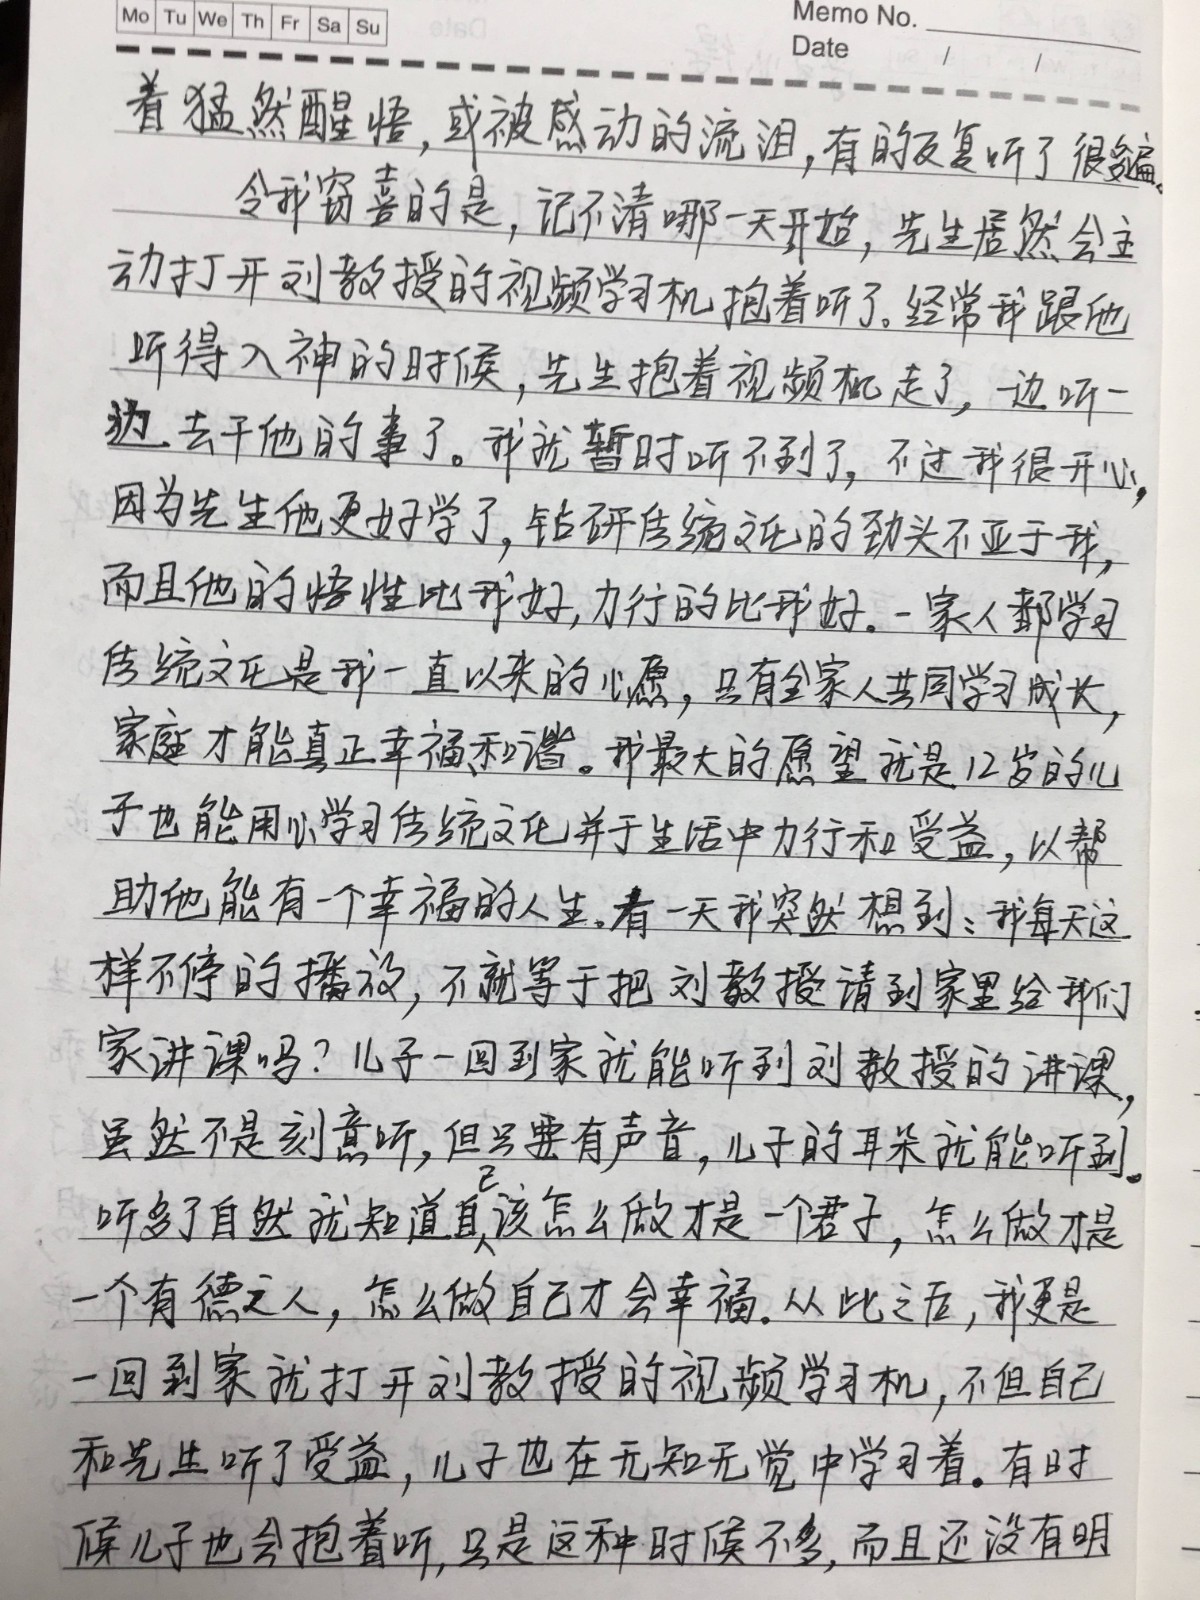 Mo Tu We Th Fr Sa Su
Memo No.
Date / /
着猛然醒悟,或被感动的流泪,有的反复听了很多遍。
令我窃喜的是,记不清哪一天开始,先生居然会主
动打开刘教授的视频学习机抱着听了。经常我跟他
听得入神的时候,先生抱着视频机走了,一边听一
边去干他的事了。我就暂时听不到了,不过我很开心,
因为先生他更好学了,钻研传统文化的劲头不亚于我,
而且他的悟性比我好,力行的比我好。一家人都学习
传统文化是我一直以来的心愿,只有全家人共同学习成长,
家庭才能真正幸福和谐。我最大的愿望就是12岁的儿
子也能用心学习传统文化并于生活中力行和受益,以帮
助他能有一个幸福的人生。有一天我突然想到:我每天这
样不停的播放,不就等于把刘教授请到家里给我们
家讲课吗?儿子一回到家就能听到刘教授的讲课,
虽然不是刻意听,但只要有声音,儿子的耳朵就能听到。
听多了自然就知道自己该怎么做才是一个君子,怎么做才是
一个有德之人,怎么做自己才会幸福。从此之后,我更是
一回到家就打开刘教授的视频学习机,不但自己
和先生听了受益,儿子也在无知无觉中学习着。有时
候儿子也会抱着听,只是这种时候不多,而且还没有明